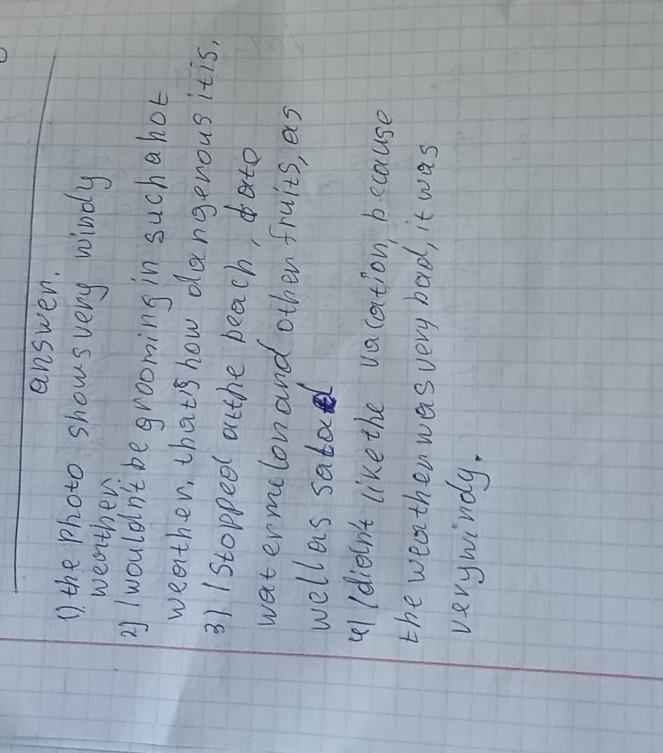 answer.
1) the photo shows very windy
weather
2) I wouldn't be grooming in such a hot
weather, that is how dangerous it is,
3) I stopped at the beach, ate
watermelon and other fruits, as
well as salad
4) I didn't like the vacation, because
the weather was very bad, it was
very windy.